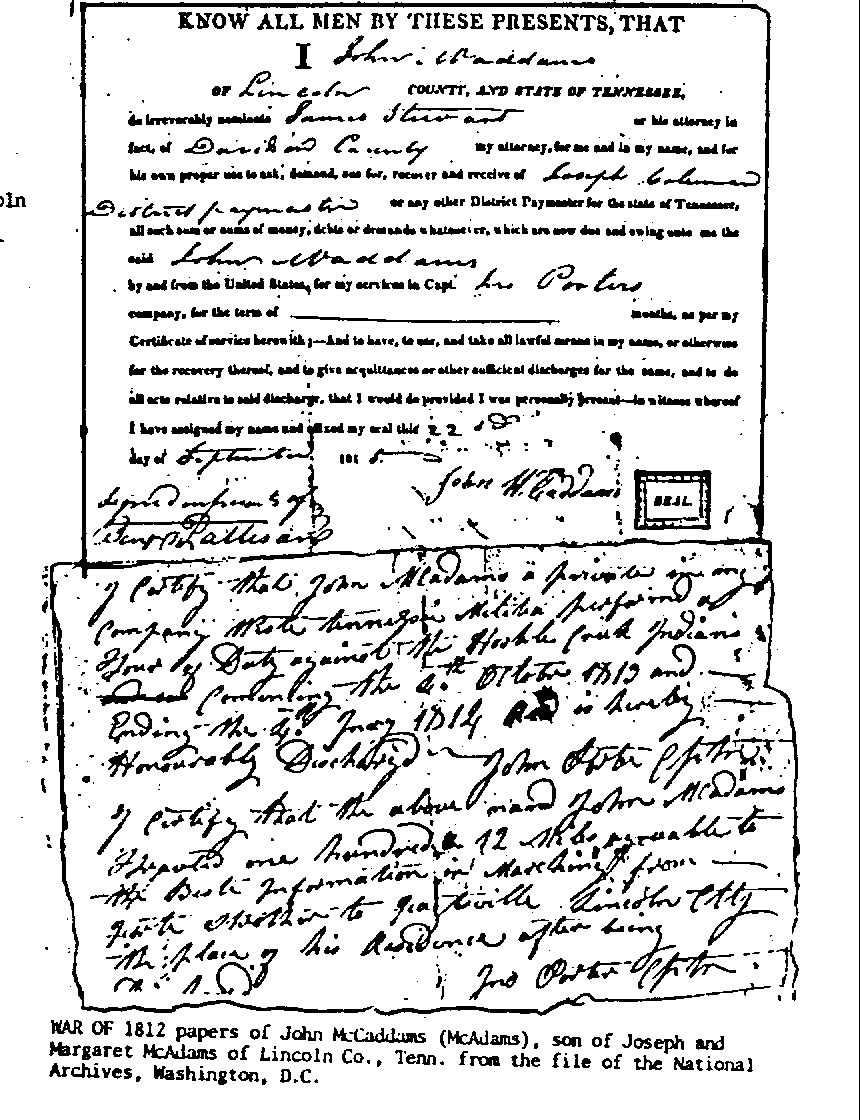 KNOW ALL MEN BY THESE PRESENTS, THAT
I John Waddams
OF Lincoln COUNTY, AND STATE OF TENNESSEE,
do irrevorably nominate James Stewart or his attorney in
fact, of Davidson County my attorney, for me and in my name, and for
his own proper use to ask, demand, sue for, recover and receive of Joseph Coleman
oln
District paymaster or any other District Paymaster for the state of Tennessee,
all such sum or sums of money, debts or demands whatsoever, which are now due and owing unto me the
said John Waddams
by and from the United States, for my services in Capt. Porters
company, for the term of months, as per my
Certificate of service herewith;—And to have, to use, and take all lawful means in my name, or otherwise
for the recovery thereof, and to give acquittances or other sufficient discharges for the same, and to do
all acts relative to said discharge, that I would do provided I was personally present—in witness whereof
I have assigned my name and affixed my seal this 22
day of September 181
John McCaddams SEAL.
Signed in presence of
Pattison
I Certify that John McAdams a private in my
Company West tennessee Militia performed a
Tour of Duty against the Hostile Creek Indians
Comencing the 4th October 1813 and
Ending the 4th 1814 is hereby
Honourably Discharged John Porter Captn
I Certify that the above named John McAdams
one hundred & 12 Miles agreeable to
the Best Information in Marching from
Forte Strother to Lincoln Ctty
the place of his Residence after being
Jno Porter Captn
WAR OF 1812 papers of John McCaddams (McAdams), son of Joseph and
Margaret McAdams of Lincoln Co., Tenn. from the file of the National
Archives, Washington, D.C.